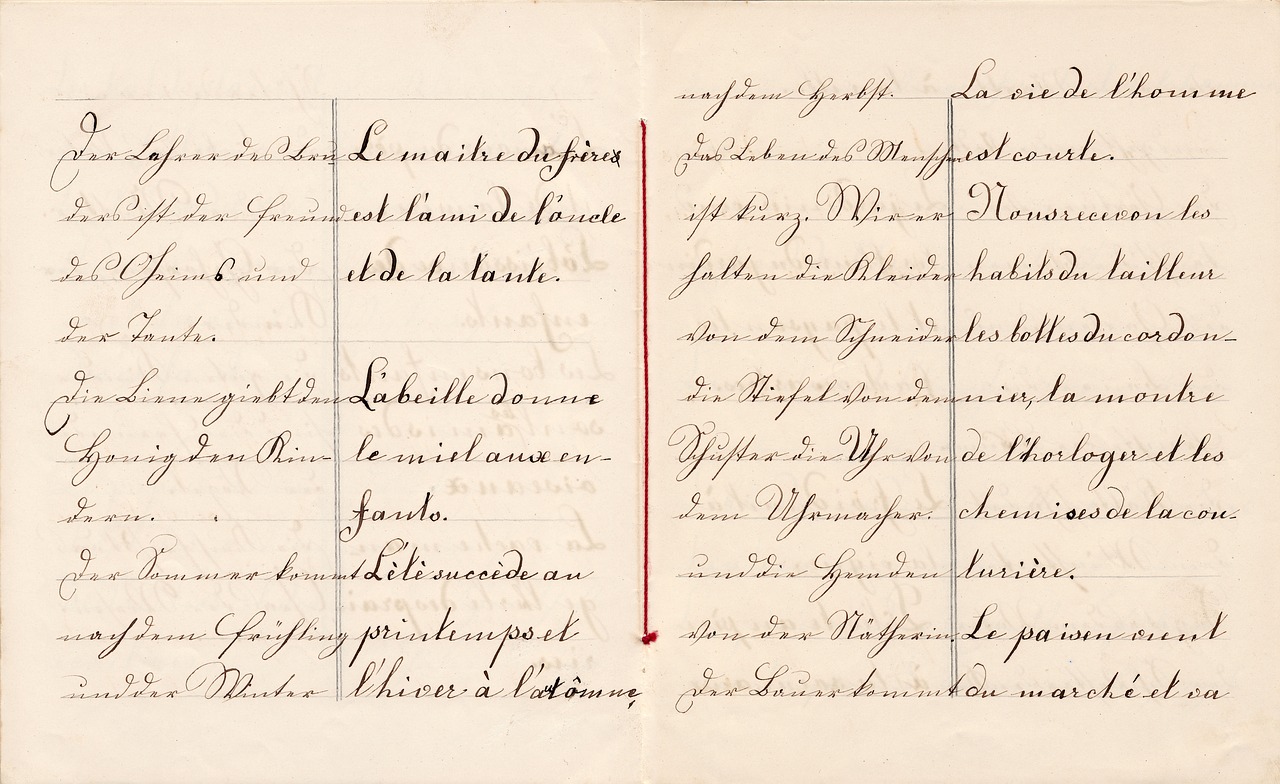 Der Lehrer des Bru
ders ist der Freund
des Oheims und
der Tante.
Die Biene giebt den
Honig den Kin-
dern.
Der Sommer kommt
nach dem Frühling
und der Winter
Le maitre du frère
est l'ami de l'oncle
et de la tante.
L'abeille donne
le miel aux en-
fants.
L'étè succède au
printemps et
l'hiver à l'autômne,
nach dem Herbst.
Das Leben des Menschen
ist kurz. Wir er
halten die Kleider
von dem Schneider
die Stiefel von dem
Schuster die Uhr von
dem Uhrmacher.
und die Hemden
von der Nätherin
Der Bauer kommt
La vie de l'homme
est courte.
Nous recevon les
habits du tailleur
les bottes du cordon-
nier, la montre
de l'horloger et les
chemises de la cou-
turière.
Le paisen vient
du marché et va